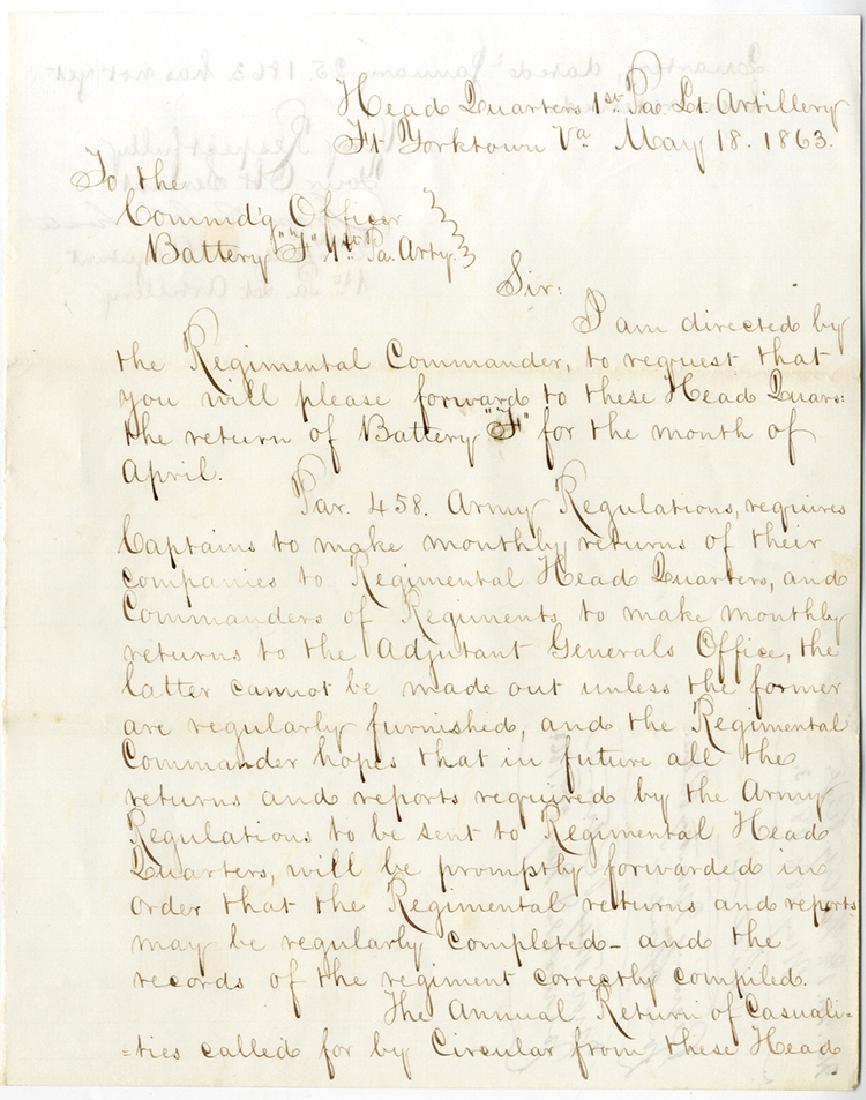 Head Quarters 1st Pa. Lt. Artillery
Ft Yorktown Va May 18. 1863.
To the
Commd'g Officer
Battery "F" 1st Pa. Arty.
Sir:
I am directed by
the Regimental Commander, to request that
you will please forward to these Head Quars:
the return of Battery "F" for the month of
April.
Par. 458. Army Regulations, requires
Captains to make monthly returns of their
companies to Regimental Head Quarters, and
Commanders of Regiments to make monthly
returns to the Adjutant Generals Office, the
latter cannot be made out unless the former
are regularly furnished, and the Regimental
Commander hopes that in future all the
returns and reports required by the Army
Regulations to be sent to Regimental Head
Quarters, will be promptly forwarded in
order that the Regimental returns and reports
may be regularly completed - and the
records of the regiment correctly compiled.
The Annual Return of Casuali-
-ties called for by Circular from these Head